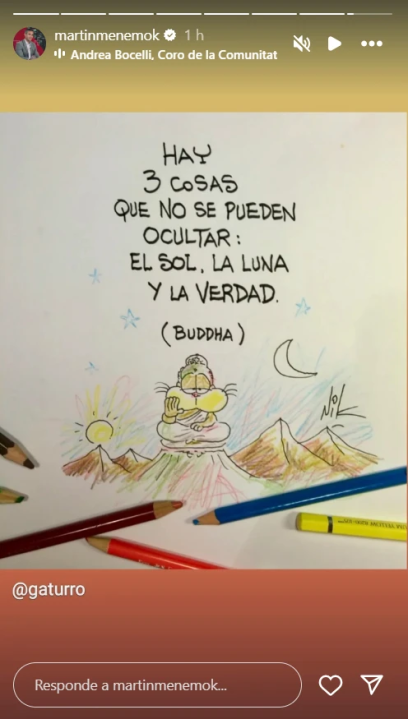 martinmenemok 1 h
Andrea Bocelli, Coro de la Comunitat
HAY
3 COSAS
QUE NO SE PUEDEN
OCULTAR:
EL SOL, LA LUNA
Y LA VERDAD.
(BUDDHA)
NIK
@gaturro
Responde a martinmenemok...